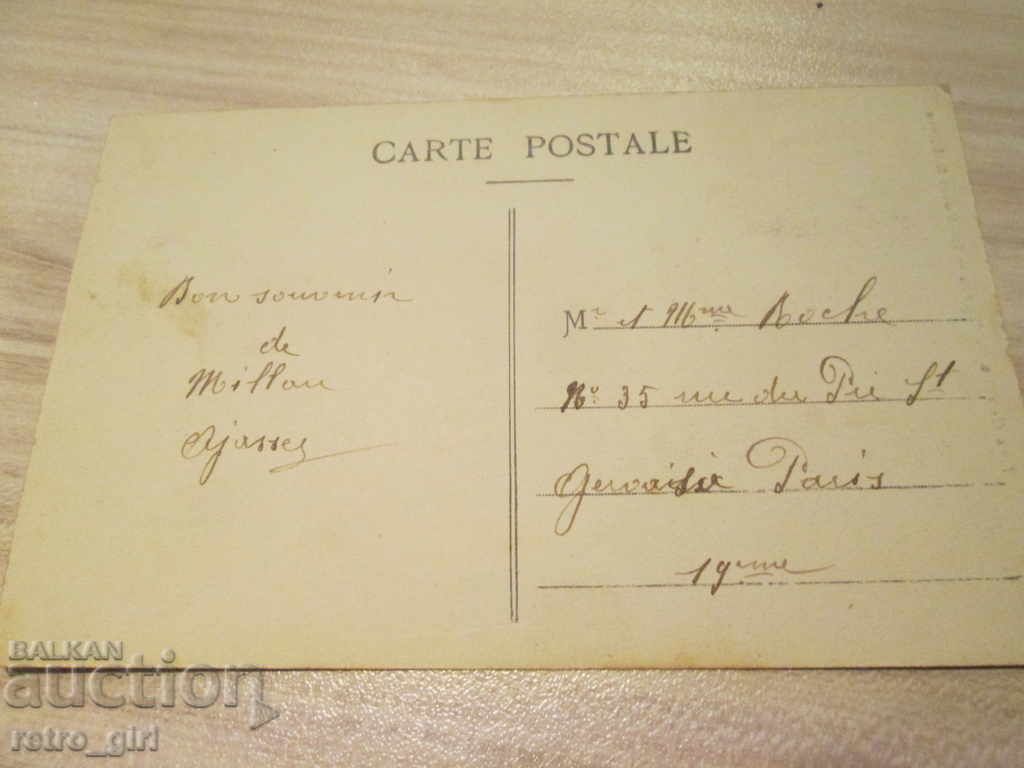 CARTE POSTALE
Bon souvenir
de
Millau
Mr et Mme Roche
No 35 rue du Pré St
Gervaisie Paris
19eme
BALKAN
auction
retro_girl